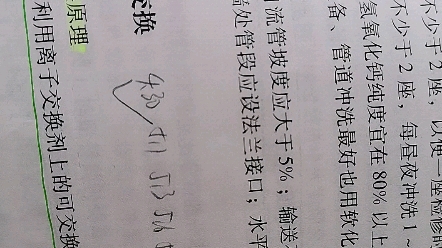 不少于2座，以便一座检修
不少于2座，每昼夜冲洗1～
氢氧化钙纯度宜在80%以上
备、管道冲洗最好也用软化
流管坡度应大于5%；输送
处管段应设法兰接口；水平
交换
430
原理
利用离子交换剂上的可交换